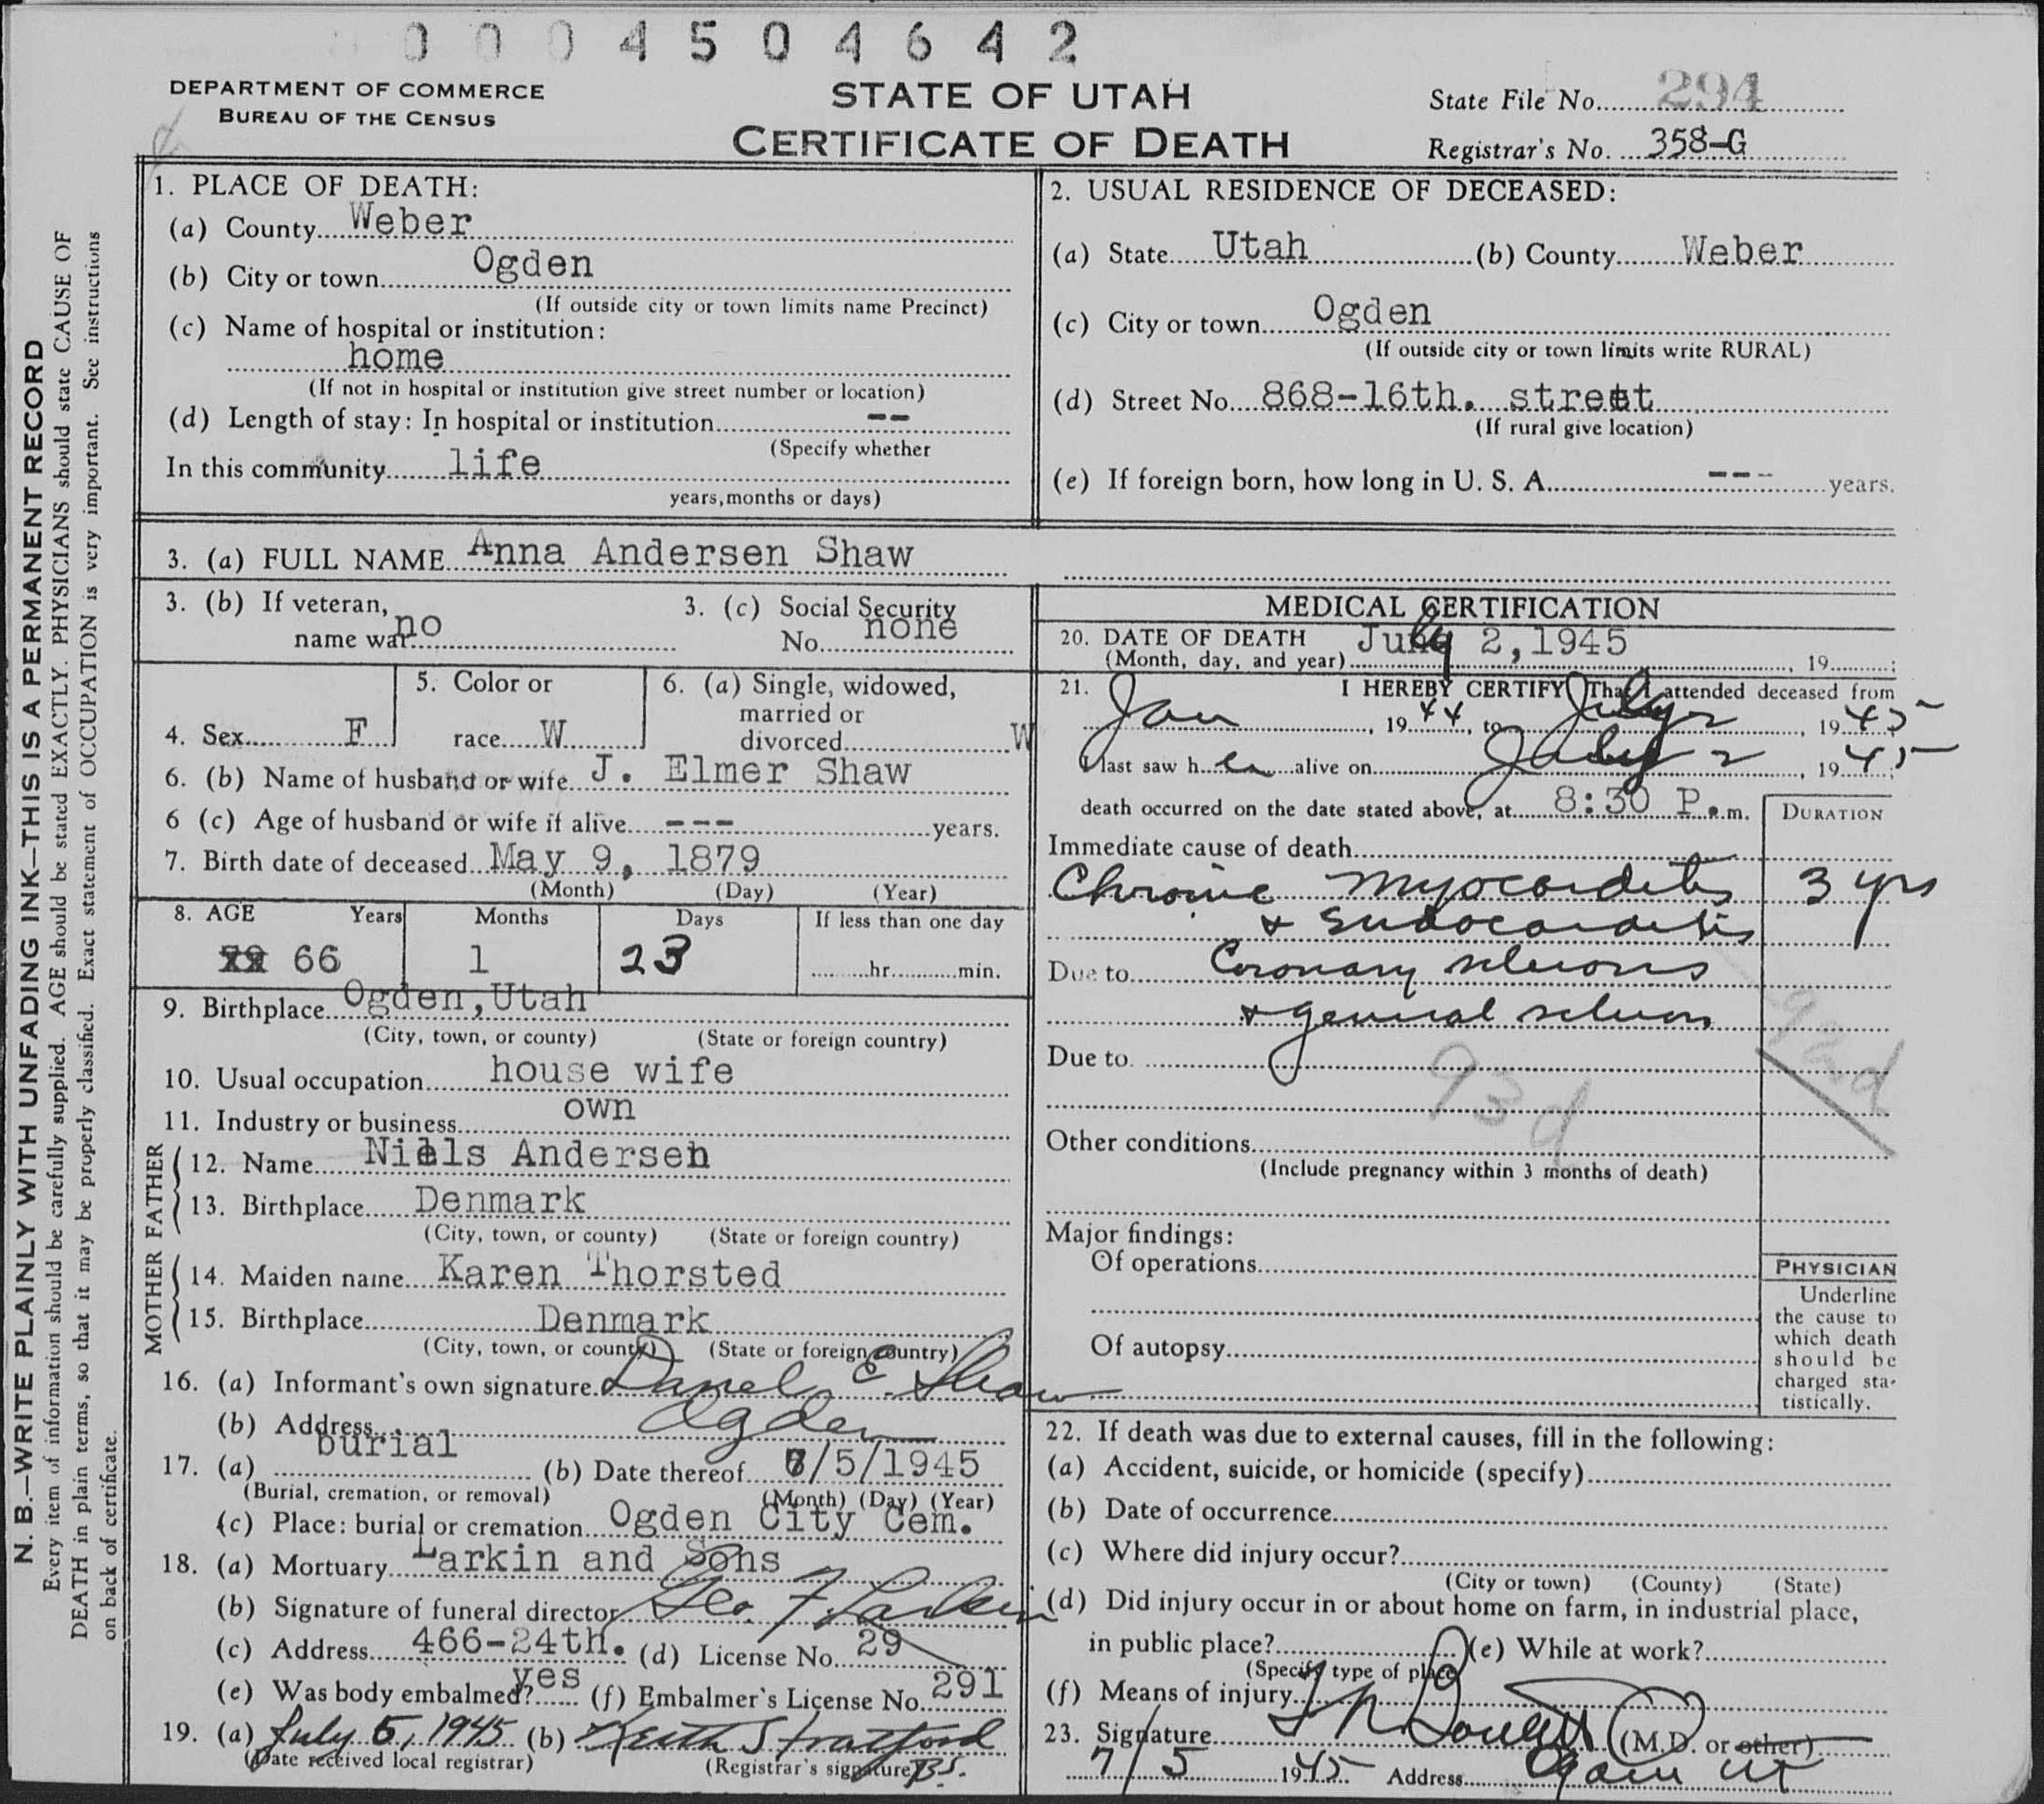 0004504642
DEPARTMENT OF COMMERCE
BUREAU OF THE CENSUS
STATE OF UTAH
CERTIFICATE OF DEATH
State File No. 294
Registrar's No. 358-G
N. B.—WRITE PLAINLY WITH UNFADING INK—THIS IS A PERMANENT RECORD
Every item of information should be carefully supplied. AGE should be stated EXACTLY. PHYSICIANS should state CAUSE OF
DEATH in plain terms, so that it may be properly classified. Exact statement of OCCUPATION is very important. See instructions
on back of certificate.
1. PLACE OF DEATH:
(a) County Weber
(b) City or town Ogden
(If outside city or town limits name Precinct)
(c) Name of hospital or institution:
home
(If not in hospital or institution give street number or location)
(d) Length of stay: In hospital or institution --
(Specify whether
In this community life
years, months or days)
2. USUAL RESIDENCE OF DECEASED:
(a) State Utah (b) County Weber
(c) City or town Ogden
(If outside city or town limits write RURAL)
(d) Street No. 868-16th. street
(If rural give location)
(e) If foreign born, how long in U. S. A. --- years.
3. (a) FULL NAME Anna Andersen Shaw
3. (b) If veteran, name war no
3. (c) Social Security No. none
4. Sex F
5. Color or race W
6. (a) Single, widowed, married or divorced W
6. (b) Name of husband or wife J. Elmer Shaw
6 (c) Age of husband or wife if alive --- years.
7. Birth date of deceased May 9, 1879
(Month) (Day) (Year)
8. AGE Years Months Days If less than one day
66 1 23 hr. min.
9. Birthplace Ogden, Utah
(City, town, or county) (State or foreign country)
10. Usual occupation house wife
11. Industry or business own
FATHER
12. Name Niels Andersen
13. Birthplace Denmark
(City, town, or county) (State or foreign country)
MOTHER
14. Maiden name Karen Thorsted
15. Birthplace Denmark
(City, town, or county) (State or foreign country)
16. (a) Informant's own signature Daniel E. Shaw
(b) Address Ogden
17. (a) burial (b) Date thereof 7/5/1945
(Burial, cremation, or removal) (Month) (Day) (Year)
(c) Place: burial or cremation Ogden City Cem.
18. (a) Mortuary Larkin and Sons
(b) Signature of funeral director Geo. F. Larkin
(c) Address 466-24th. (d) License No. 29
(e) Was body embalmed? yes (f) Embalmer's License No. 291
19. (a) July 5, 1945 (b) Keith Stratford
(Date received local registrar) (Registrar's signature) BS.
MEDICAL CERTIFICATION
20. DATE OF DEATH July 2, 1945
(Month, day, and year) , 19 ;
21. I HEREBY CERTIFY That I attended deceased from
Jan , 19 44, to July 2 , 19 45
I last saw h er alive on July 2 , 19 45;
death occurred on the date stated above, at 8:30 P.m.
DURATION
Immediate cause of death
Chronic myocarditis 3 yrs
& Endocarditis
Due to Coronary sclerosis
& general scleros
92d
Due to
93d
Other conditions
(Include pregnancy within 3 months of death)
Major findings:
Of operations
Of autopsy
PHYSICIAN
Underline
the cause to
which death
should be
charged sta-
tistically.
22. If death was due to external causes, fill in the following:
(a) Accident, suicide, or homicide (specify)
(b) Date of occurrence
(c) Where did injury occur?
(City or town) (County) (State)
(d) Did injury occur in or about home on farm, in industrial place,
in public place? (e) While at work?
(Specify type of place)
(f) Means of injury
23. Signature (M.D. or other)
7/5 1945 Address Ogden Ut